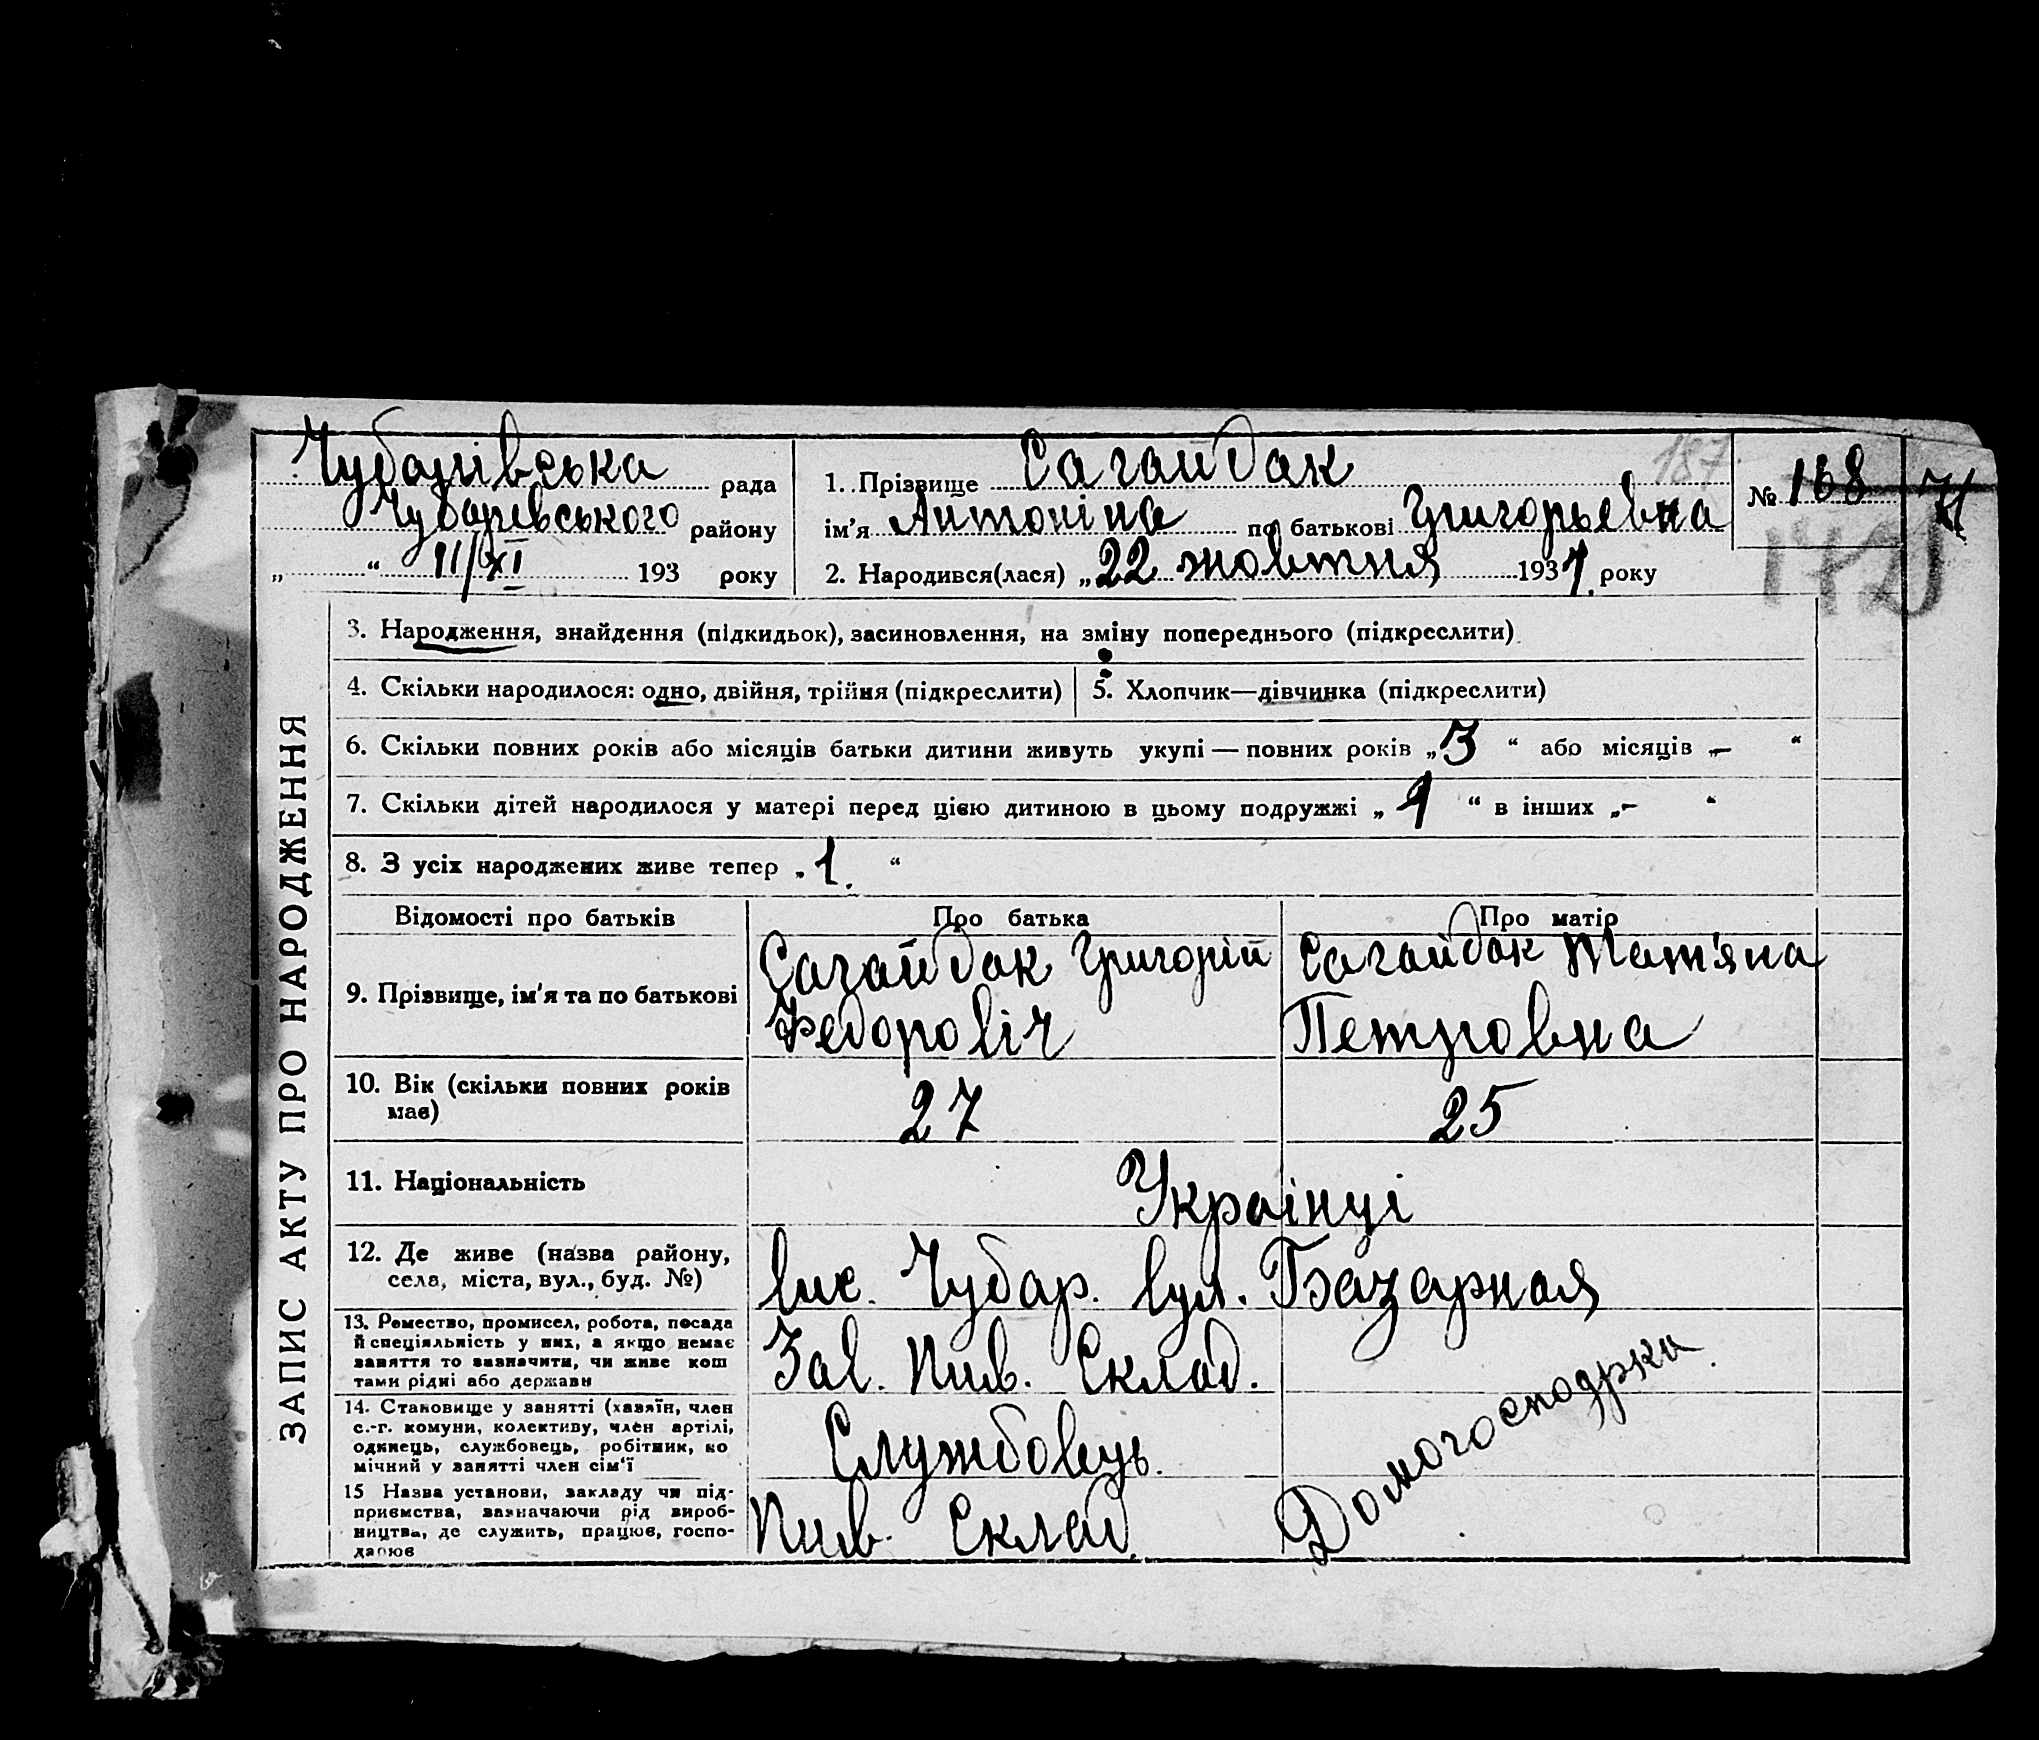 Чубарівська рада
Чубарівського району
„ “ 11/XI 193 року
1. Прізвище Сагайдак
ім'я Антоніна по батькові Григорьевна
2. Народився(лася) „22 жовтня 1931 року
187
№ 168
71
172
ЗАПИС АКТУ ПРО НАРОДЖЕННЯ
3. Народження, знайдення (підкидьок), засиновлення, на зміну попереднього (підкреслити).
4. Скільки народилося: одно, двійня, трійня (підкреслити)
5. Хлопчик—дівчинка (підкреслити)
6. Скільки повних років або місяців батьки дитини живуть укупі — повних років „3 “ або місяців „— “
7. Скільки дітей народилося у матері перед цією дитиною в цьому подружжі „ 1 “ в інших „— “
8. З усіх народжених живе тепер „1. “
Відомості про батьків
Про батька
Про матір
9. Прізвище, ім'я та по батькові
Сагайдак Григорій
Федоровіч
Сагайдак Тат'яна
Петровна
10. Вік (скільки повних років
має)
27
25
11. Національність
Украінці
12. Де живе (назва району,
села, міста, вул., буд. №)
вис. Чубар. вул. Базарная
13. Ремество, промисел, робота, посада
й спеціяльність у них, а якщо немає
заняття то зазначити, чи живе кош
тами рідні або держави
Зав. Пив. Склад.
14. Становище у занятті (хазяїн, член
с.-г. комуни, колективу, член артілі,
одинець, службовець, робітник, по
мічний у занятті член сім'ї
Службовець.
15 Назва установи, закладу чи під-
приємства, зазначаючи рід вироб-
ництва, де служить, працює, госпо-
дарює
Пив. Склад.
Домогосподрка.